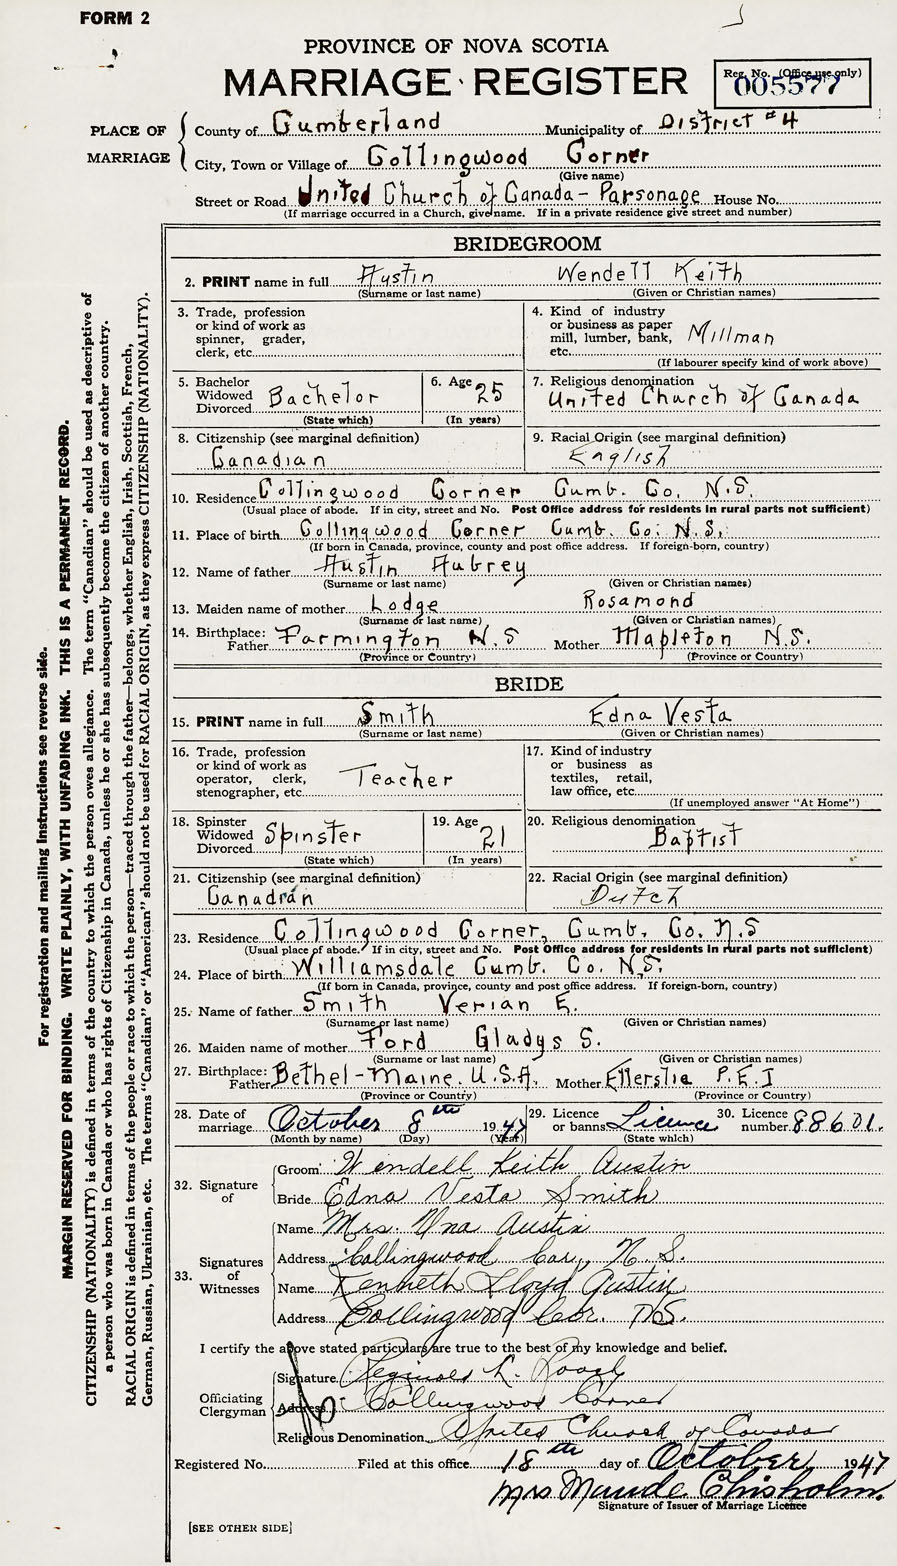 FORM 2
PROVINCE OF NOVA SCOTIA
MARRIAGE REGISTER
Reg. No. (Office use only)
005577
PLACE OF MARRIAGE
County of Cumberland Municipality of District #4
City, Town or Village of Collingwood Corner
(Give name)
Street or Road United Church of Canada - Parsonage House No.
(If marriage occurred in a Church, give name. If in a private residence give street and number)
For registration and mailing instructions see reverse side.
MARGIN RESERVED FOR BINDING. WRITE PLAINLY, WITH UNFADING INK. THIS IS A PERMANENT RECORD.
CITIZENSHIP (NATIONALITY) is defined in terms of the country to which the person owes allegiance. The term "Canadian" should be used as descriptive of
a person who was born in Canada or who has rights of Citizenship in Canada, unless he or she has subsequently become the citizen of another country.
RACIAL ORIGIN is defined in terms of the people or race to which the person—traced through the father—belongs, whether English, Irish, Scottish, French,
German, Russian, Ukrainian, etc. The terms "Canadian" or "American" should not be used for RACIAL ORIGIN, as they express CITIZENSHIP (NATIONALITY).
BRIDEGROOM
2. PRINT name in full Austin Wendell Keith
(Surname or last name) (Given or Christian names)
3. Trade, profession
or kind of work as
spinner, grader,
clerk, etc.
4. Kind of industry
or business as paper
mill, lumber, bank,
etc. Millman
(If labourer specify kind of work above)
5. Bachelor
Widowed
Divorced Bachelor
(State which)
6. Age 25
(In years)
7. Religious denomination
United Church of Canada
8. Citizenship (see marginal definition)
Canadian
9. Racial Origin (see marginal definition)
English
10. Residence Collingwood Corner Cumb. Co. N.S.
(Usual place of abode. If in city, street and No. Post Office address for residents in rural parts not sufficient)
11. Place of birth Collingwood Corner Cumb. Co. N.S.
(If born in Canada, province, county and post office address. If foreign-born, country)
12. Name of father Austin Aubrey
(Surname or last name) (Given or Christian names)
13. Maiden name of mother Lodge Rosamond
(Surname or last name) (Given or Christian names)
14. Birthplace:
Father Farmington N.S Mother Mapleton N.S.
(Province or Country) (Province or Country)
BRIDE
15. PRINT name in full Smith Edna Vesta
(Surname or last name) (Given or Christian names)
16. Trade, profession
or kind of work as
operator, clerk,
stenographer, etc. Teacher
17. Kind of industry
or business as
textiles, retail,
law office, etc.
(If unemployed answer "At Home")
18. Spinster
Widowed
Divorced Spinster
(State which)
19. Age 21
(In years)
20. Religious denomination
Baptist
21. Citizenship (see marginal definition)
Canadian
22. Racial Origin (see marginal definition)
Dutch
23. Residence Collingwood Corner, Cumb. Co. N.S
(Usual place of abode. If in city, street and No. Post Office address for residents in rural parts not sufficient)
24. Place of birth Williamsdale Cumb. Co. N.S.
(If born in Canada, province, county and post office address. If foreign-born, country)
25. Name of father Smith Verian E.
(Surname or last name) (Given or Christian names)
26. Maiden name of mother Ford Gladys S.
(Surname or last name) (Given or Christian names)
27. Birthplace:
Father Bethel-Maine. U.S.A. Mother Ellerslie P.E.I
(Province or Country) (Province or Country)
28. Date of
marriage October 8th 1947
(Month by name) (Day) (Year)
29. Licence
or banns Licence
(State which)
30. Licence
number 88601.
32. Signature of
Groom Wendell Keith Austin
Bride Edna Vesta Smith
33. Signatures of Witnesses
Name Mrs. Una Austin
Address Collingwood Cor, N.S.
Name Kenneth Lloyd Austin
Address Collingwood Cor. N.S.
I certify the above stated particulars are true to the best of my knowledge and belief.
Officiating Clergyman
Signature Reginald L.
Address Collingwood Corner
Religious Denomination United Church of Canada
Registered No. Filed at this office 18th day of October 1947
Mrs Maude Chisholm.
Signature of Issuer of Marriage Licence
[SEE OTHER SIDE]